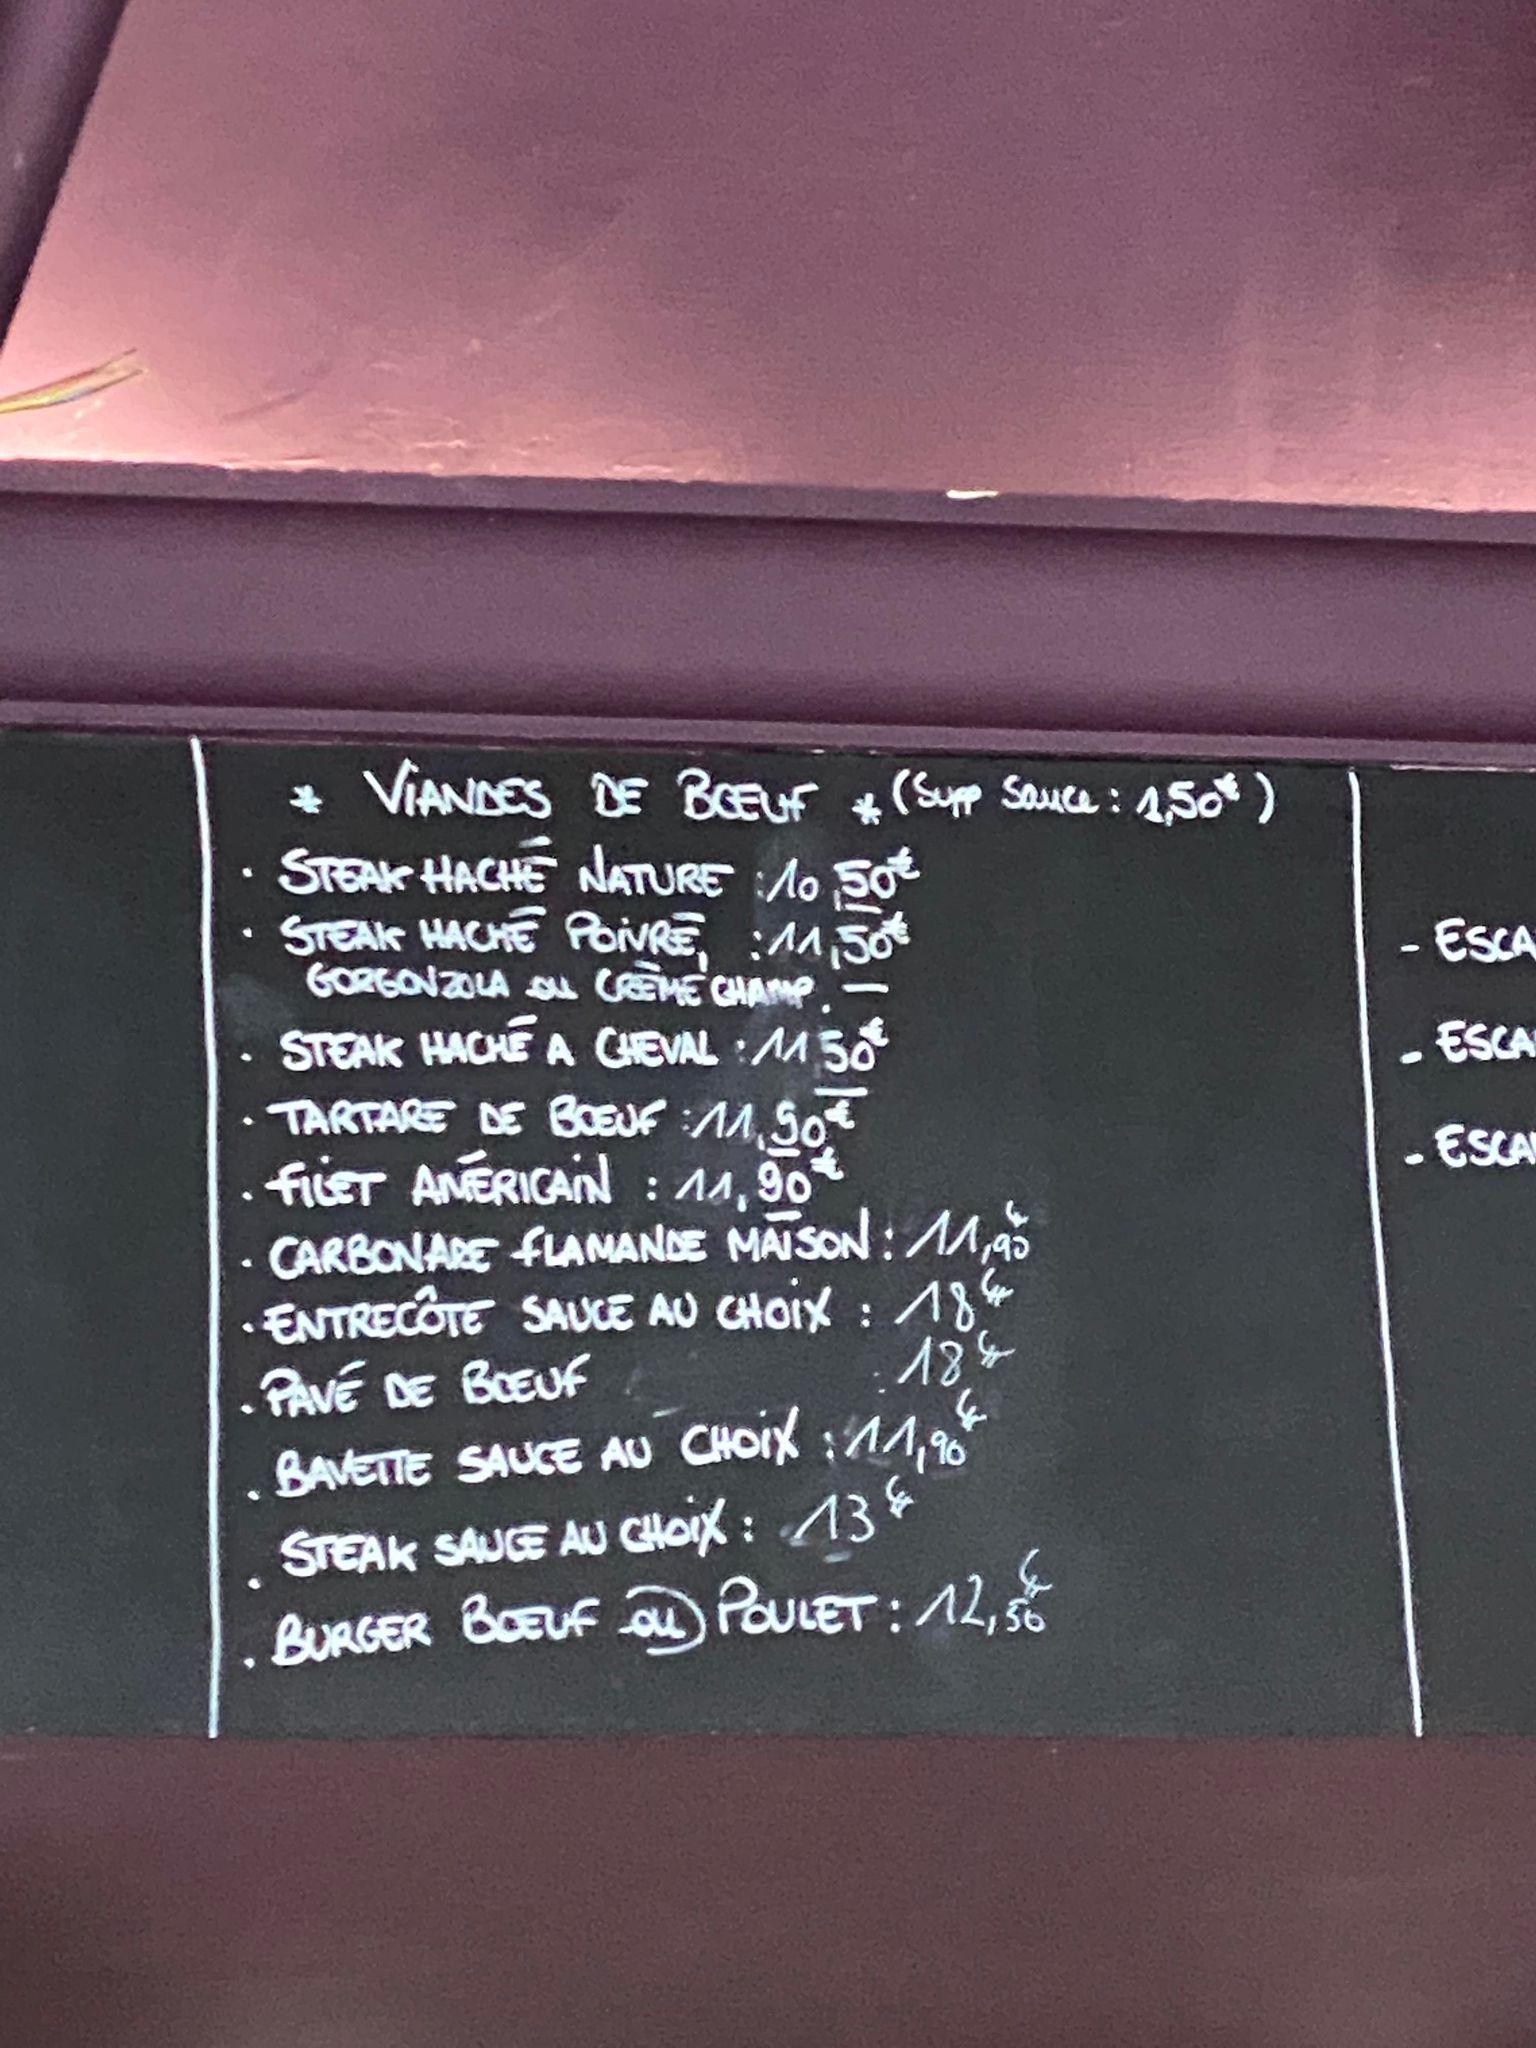 * VIANDES DE BŒUF * (Supp Sauce : 1,50€)
· STEAK HACHÉ NATURE : 10,50€
· STEAK HACHÉ POIVRE, : 11,50€
GORGONZOLA OU CRÈME CHAMP.
· STEAK HACHÉ A CHEVAL : 11,50€
· TARTARE DE BŒUF : 11,90€
· FILET AMÉRICAIN : 11,90€
· CARBONADE FLAMANDE MAISON : 11,90€
· ENTRECÔTE SAUCE AU CHOIX : 18€
· PAVÉ DE BŒUF : 18€
· BAVETTE SAUCE AU CHOIX : 11,90€
· STEAK SAUCE AU CHOIX : 13€
· BURGER BŒUF OU POULET : 12,50€
- ESCA
- ESCA
- ESCA